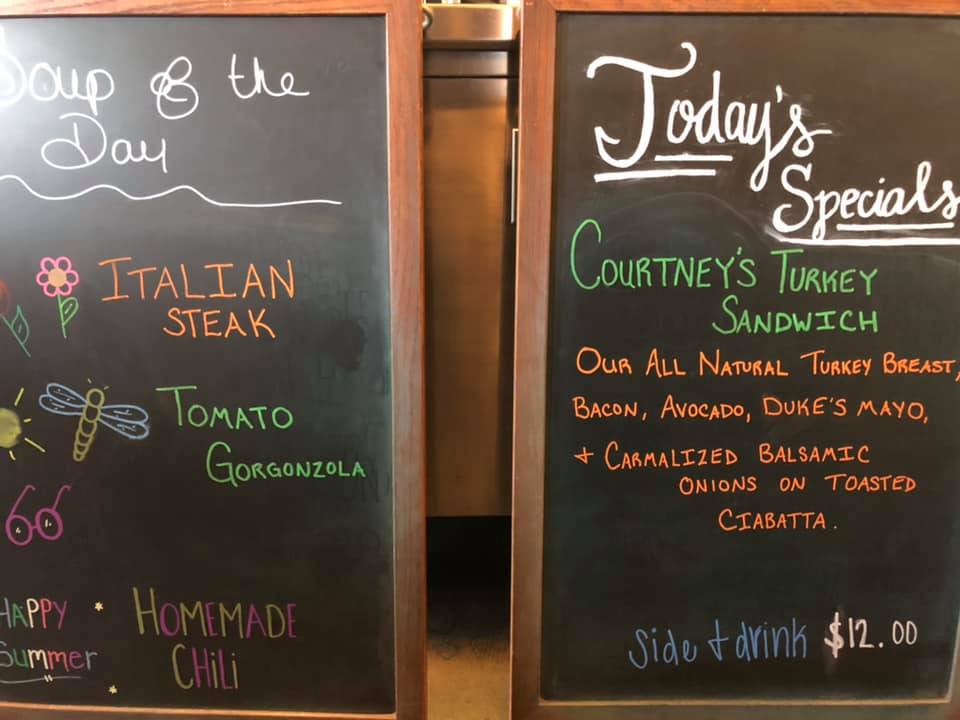 Soup of the
Day
ITALIAN
STEAK
TOMATO
GORGONZOLA
HAPPY
Summer
HOMEMADE
CHiLi
Today's
Specials
COURTNEY'S TURKEY
SANDWICH
OUR ALL NATURAL TURKEY BREAST,
BACON, AVOCADO, DUKE'S MAYO,
+ CARMALIZED BALSAMIC
ONIONS ON TOASTED
CIABATTA.
side + drink $12.00